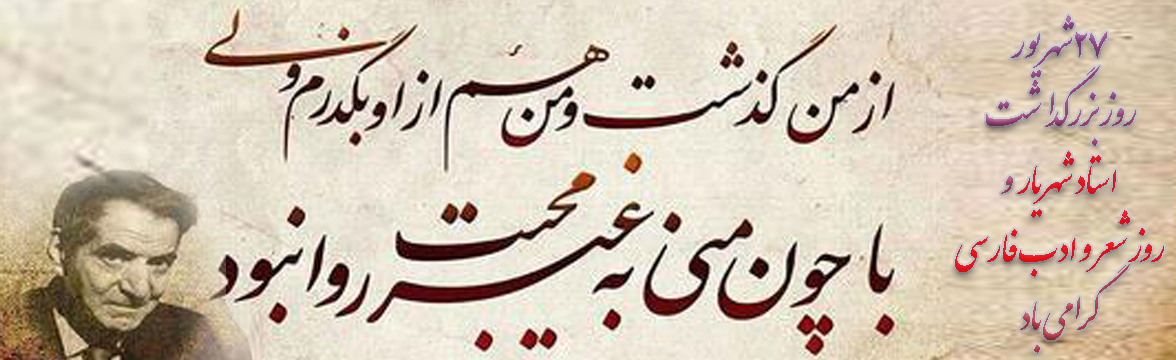 از من گذشت و من هم از او بگذرم ولی
با چون منی به غیر محبت روا نبود
۲۷ شهریور
روز بزرگداشت
استاد شهریار و
روز شعر و ادب فارسی
گرامی باد